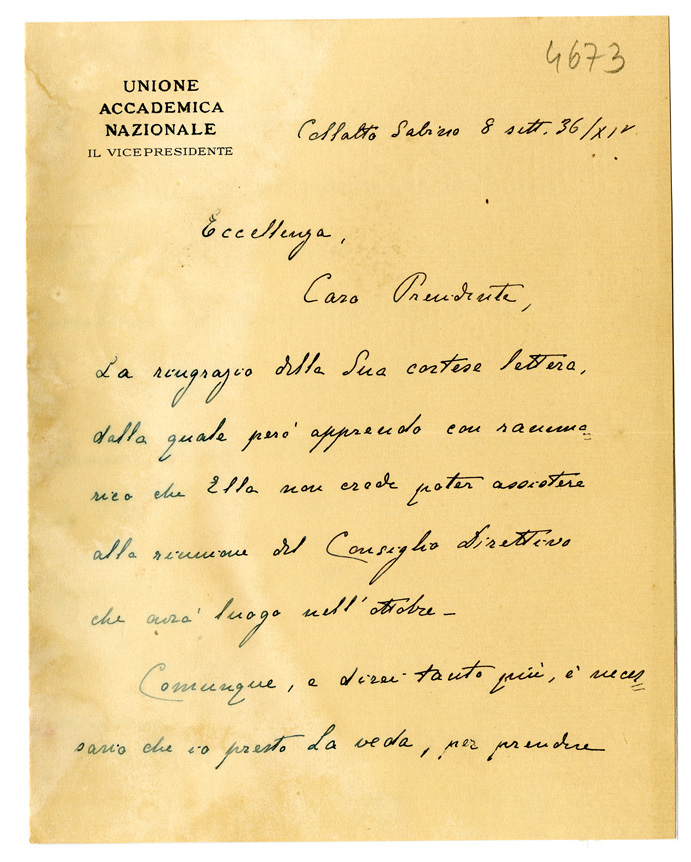 4673
UNIONE
ACCADEMICA
NAZIONALE
IL VICEPRESIDENTE
Collalto Sabino 8 sett. 36/XIV
Eccellenza,
Caro Presidente,
La ringrazio della Sua cortese lettera,
dalla quale però apprendo con ramma=
rico che Ella non crede poter assistere
alla riunione del Consiglio Direttivo
che avrà luogo nell'ottobre –
Comunque, e direi tanto più, è neces=
sario che io presto La veda, per prendere